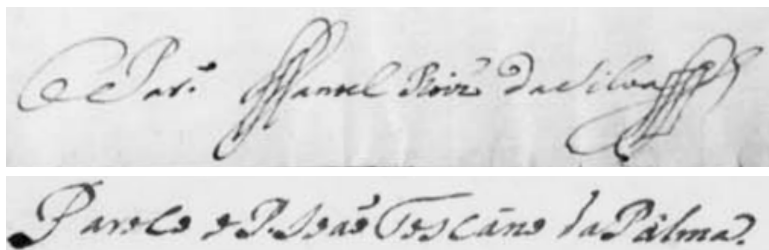 O Par.º Manoel Roiz da Silva
Parocho o P. João Toscano da Palma.